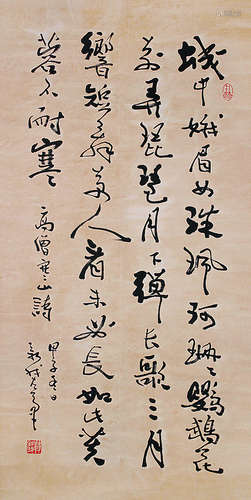 城中娥眉女珠珮珂珊々鸚鵡花
前弄琵琶月下彈长歌三月
響短舞萬人看未必长如此芙
蓉不耐寒 高僧寒山詩
甲子春日